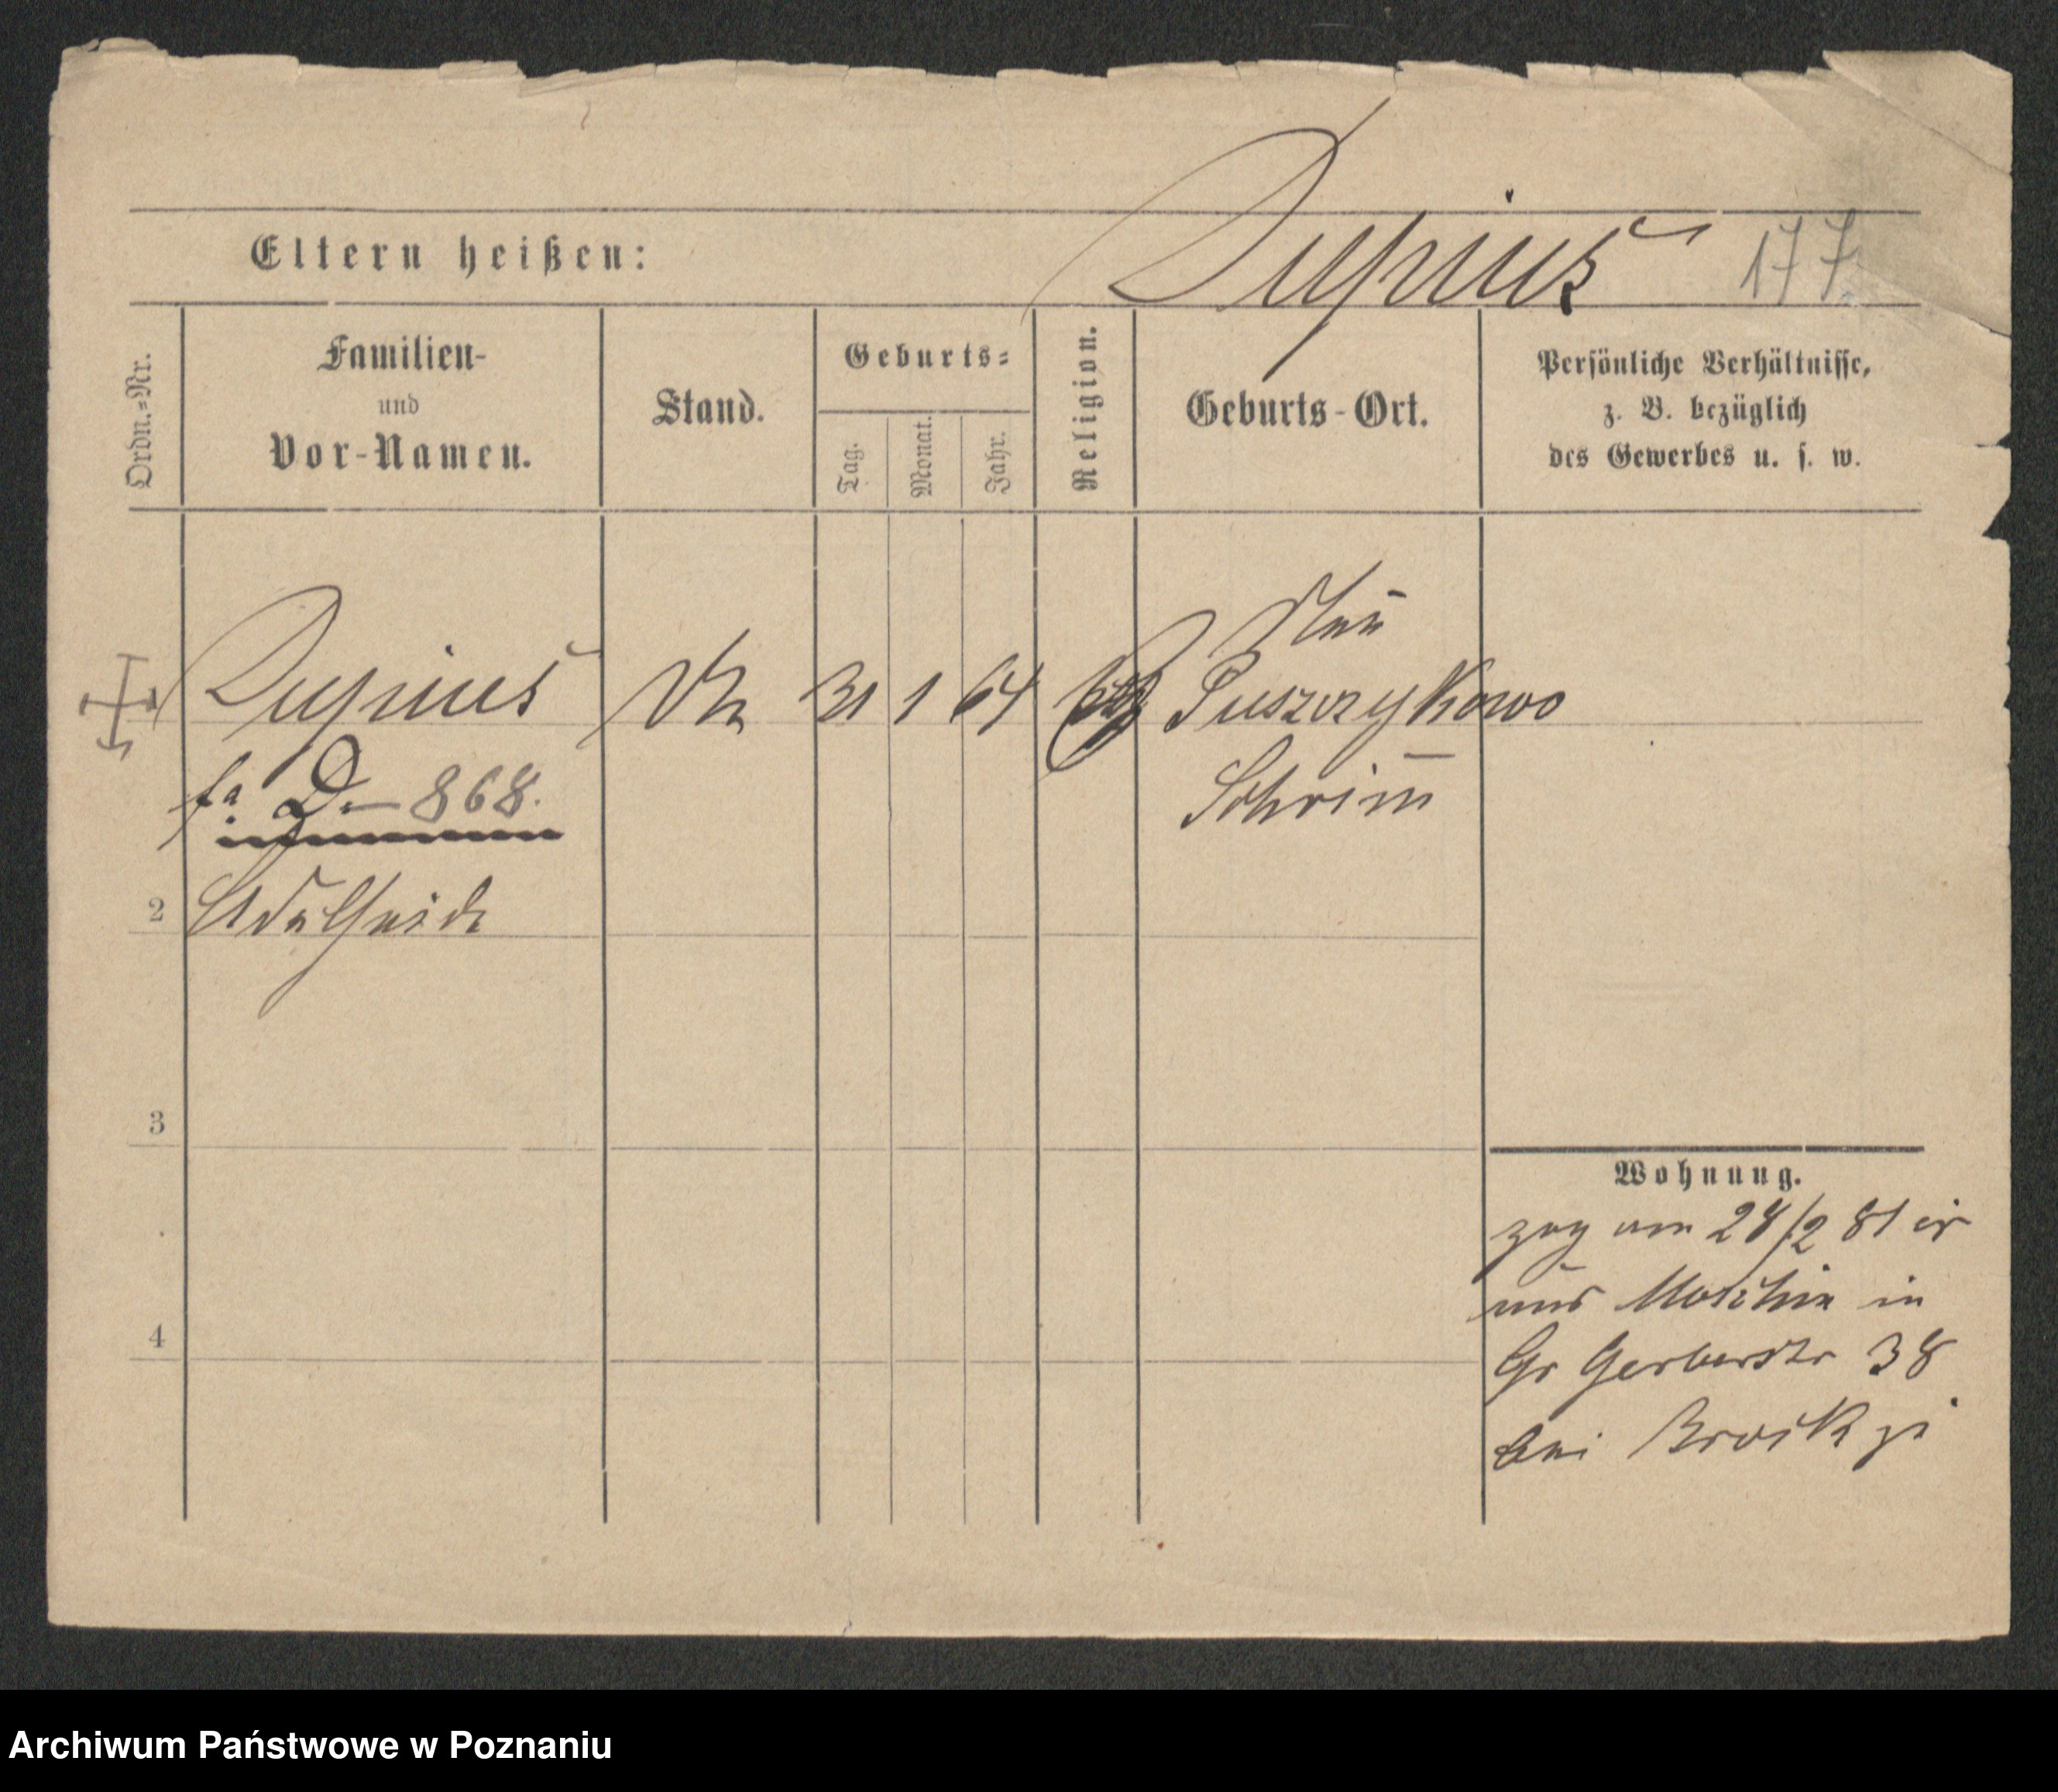 Dupius 177
Eltern heißen:
Ordn.=Nr.
Familien-
und
Vor-Namen.
Stand.
Geburts=
Tag.
Monat.
Jahr.
Religion.
Geburts-Ort.
Persönliche Verhältnisse,
z. B. bezüglich
des Gewerbes u. s. w.
Neu
Dupius 31 1 64 Puszczykowo
fa D. - 868.
Schrim̅
2 Adelheide
3
Wohnung.
zog am 24/2 81
aus Moschin in
4
Gr Gerberstr 38
bei
Archiwum Państwowe w Poznaniu